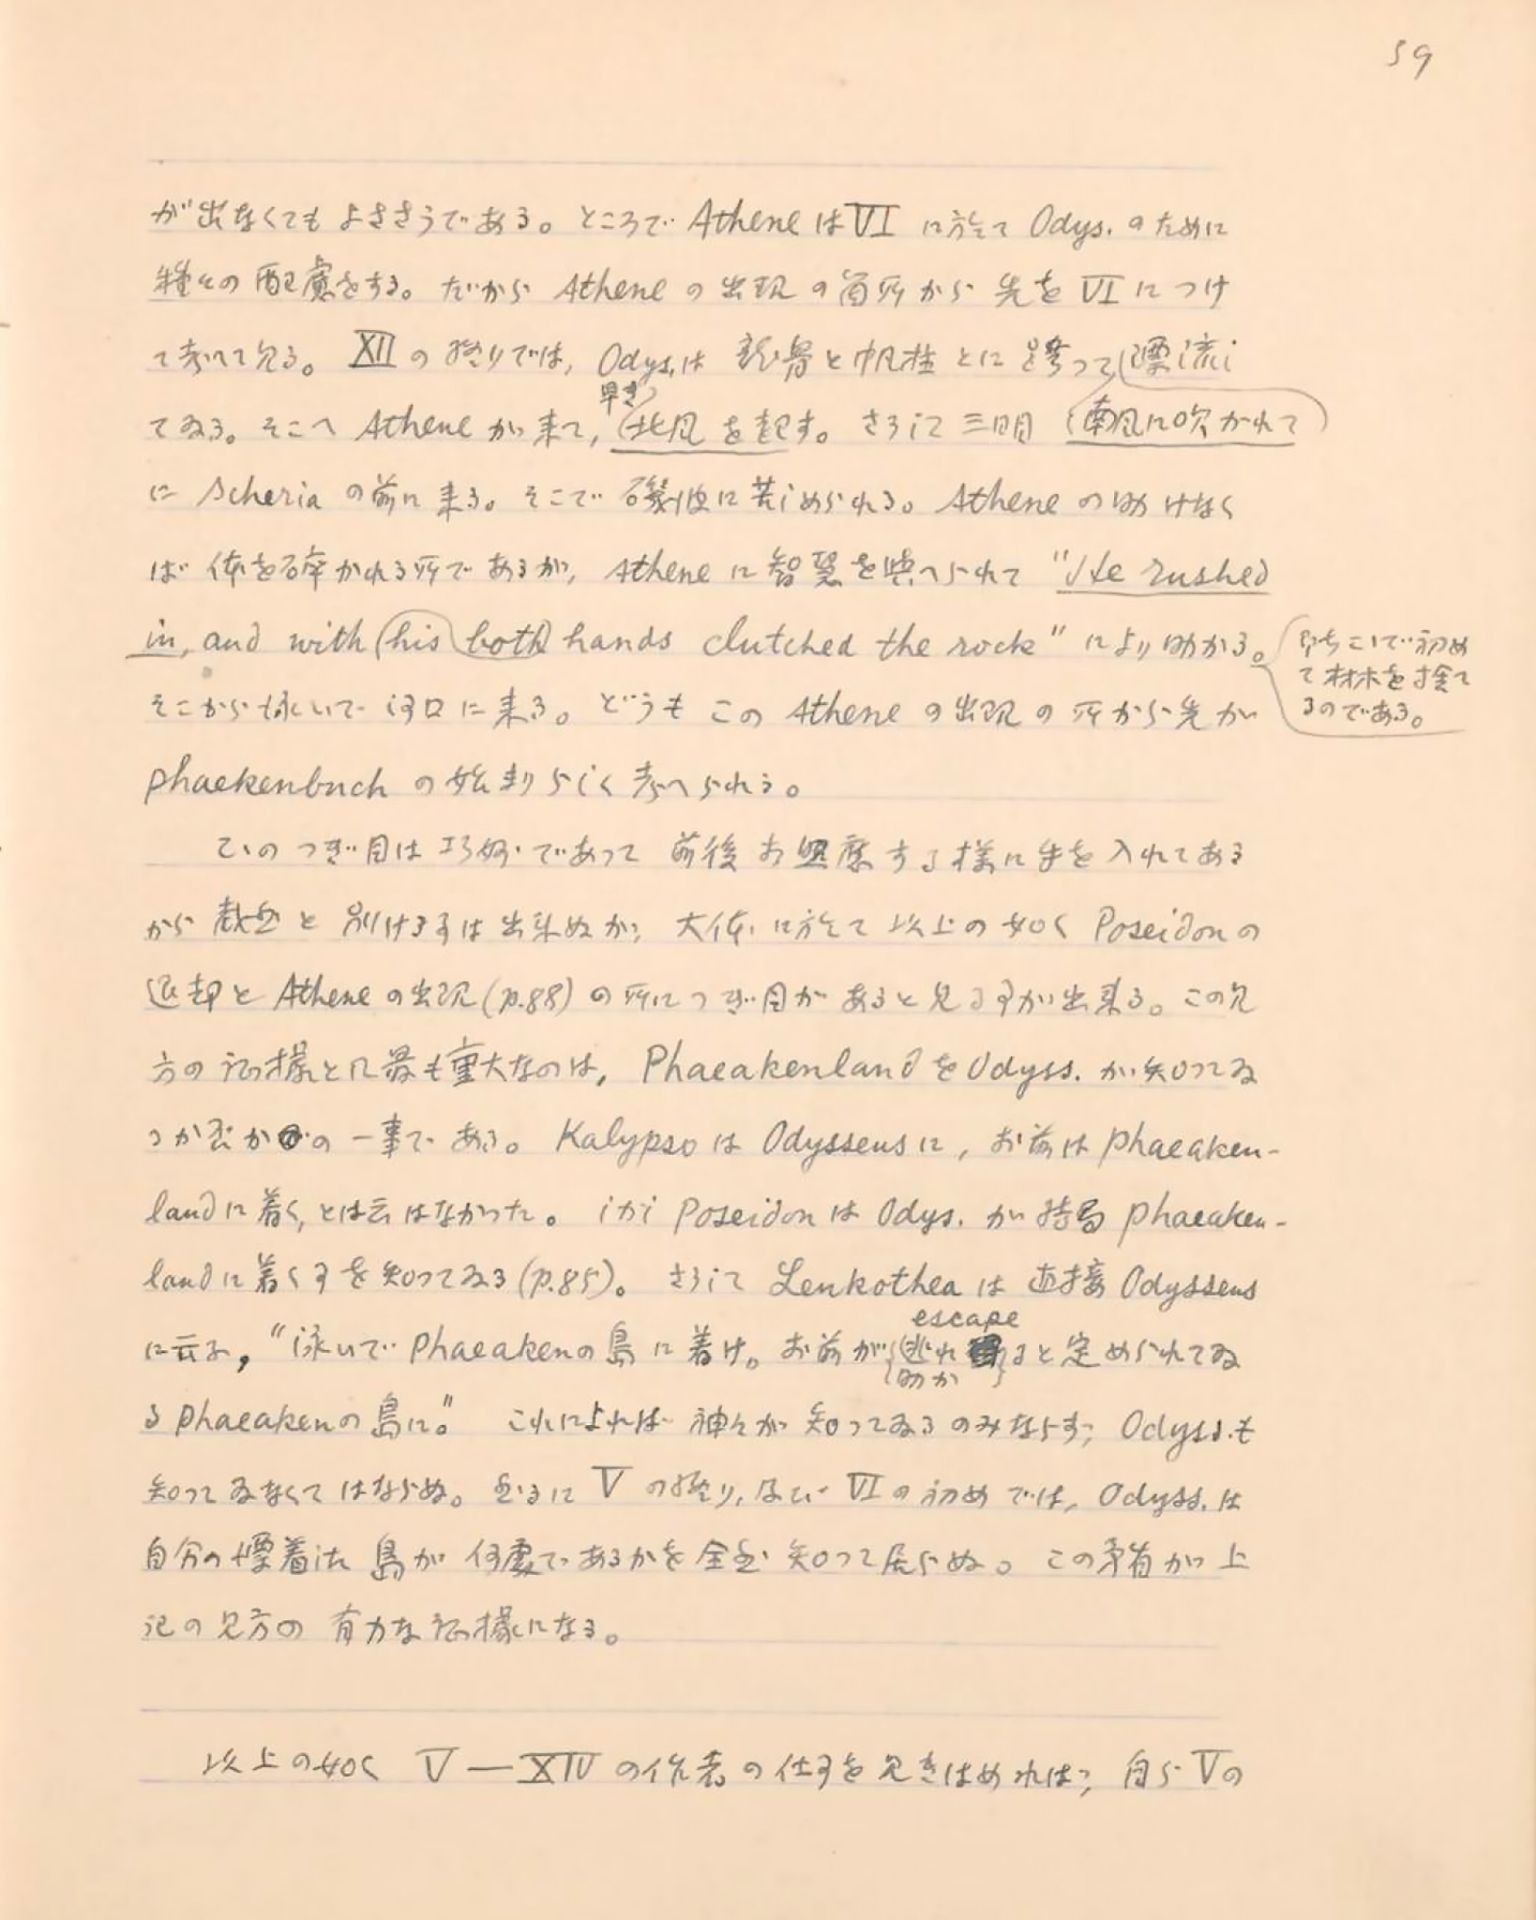 59
が出なくてもよささうである。ところで AtheneはⅥ に於て Odys. のために
種々の配慮をする。だから Athene の出現の箇所から先を Ⅵ につけ
て考へて見る。 Ⅻ の終りでは, Odys.は 龍骨と帆柱とに跨って漂流し
てゐる。そこへ Athene が来て, 早き北風を起す。さうして三日間 南風に吹かれて
に Scheria の前に来る。そこで磯波に苦しめられる。Athene の助けなく
ば 体を砕かれる所であるが, Athene に智慧を与へられて "He rushed
in, and with his both hands clutched the rock" により助かる。
即ちこゝで初め
て材木を捨て
るのである。
そこから泳いで河口に来る。どうもこの Athene の出現の所から先が
Phaekenbuch の始まりらしく考へられる。
このつぎ目は巧妙であって 前後お照應する様に手を入れてある
から 截然と別けることは出来ぬが, 大体に於て以上の如く Poseidon の
退却と Athene の出現 (p.88) の所につぎ目があると見ることが出来る。この見
方の証拠として最も重大なのは, Phaeakenland を Odyss. が知ってゐ
るか否かの一事である。Kalypso は Odysseus に, お前は Phaeaken-
land に着く, とは云はなかった。しかし Poseidon は Odys. が結局 Phaeaken-
land に着くことを知ってゐる (p.85)。さうして Leukothea は直接 Odysseus
に云ふ, "泳いで Phaeakenの島に着け。お前が逃れ escape 助かると定められてゐ
る Phaeakenの島に。" これによれば神々が知ってゐるのみならず, Odyss.も
知ってゐなくてはならぬ。然るに Ⅴ の終り, 及び Ⅵ の初めでは, Odyss. は
自分の漂着した島が何處であるかを全然知って居らぬ。この矛盾が上
記の見方の有力な証拠になる。
以上の如く Ⅴ — XⅣ の作者の仕事を見きはめれば, 自ら Ⅴの